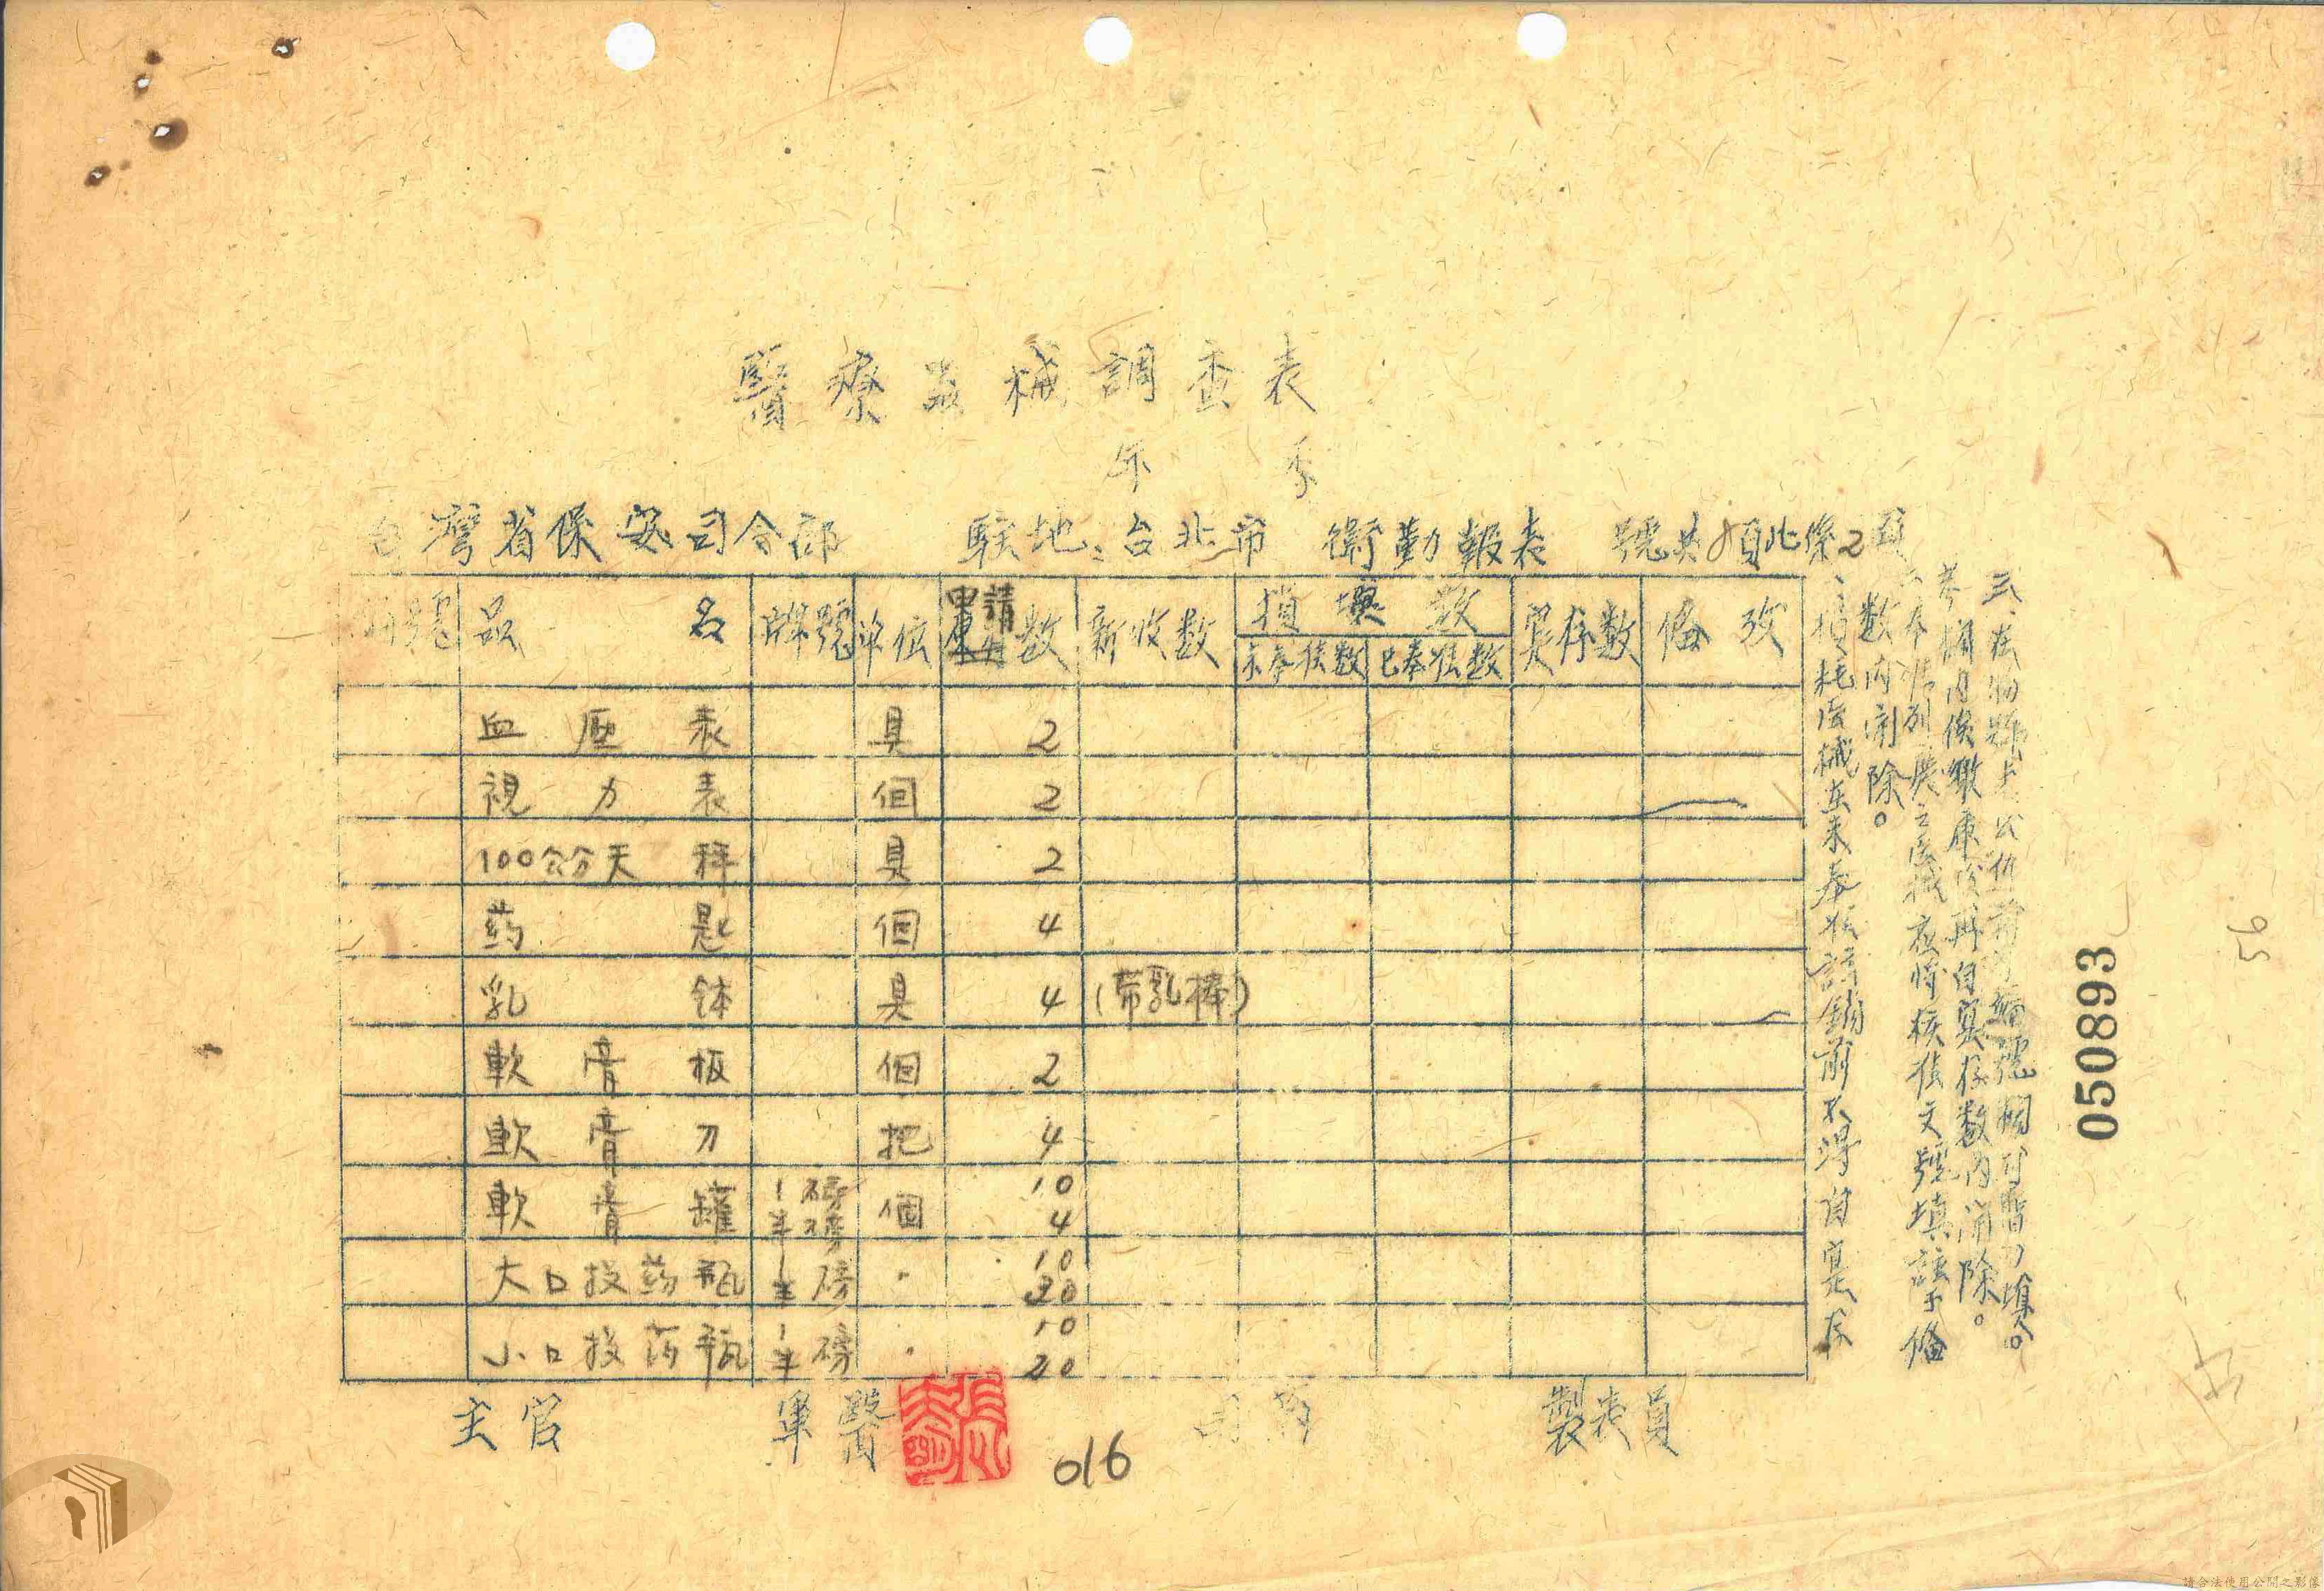 醫療器械調查表
年 季
台灣省保安司令部 駐地：台北市 衛勤報表 號共 頁此係2頁
編號 品名 牌號 單位 申請數 新收數 損壞數 未奉核數 已奉准數 實存數 備攷
血壓表 具 2
視力表 個 2
100公分天秤 具 2
葯匙 個 4
乳钵 具 4 (帶乳棒)
軟膏板 個 2
軟膏刀 把 4
軟膏罐 1磅 半磅 個 10 4
大口投葯瓶 1 半磅 〃 10 20
小口投葯瓶 1 半磅 〃 10 20
損耗医械在未奉准註銷前不得自實存
數內剷除。
二、奉准列廢之医械應將核准文號填註于備
考欄內俟繳庫後再自實存數內消除。
三、在物
編號欄可暫勿填。
主官 軍醫 司 製表員
016
050893
56
請合法使用公開之影像